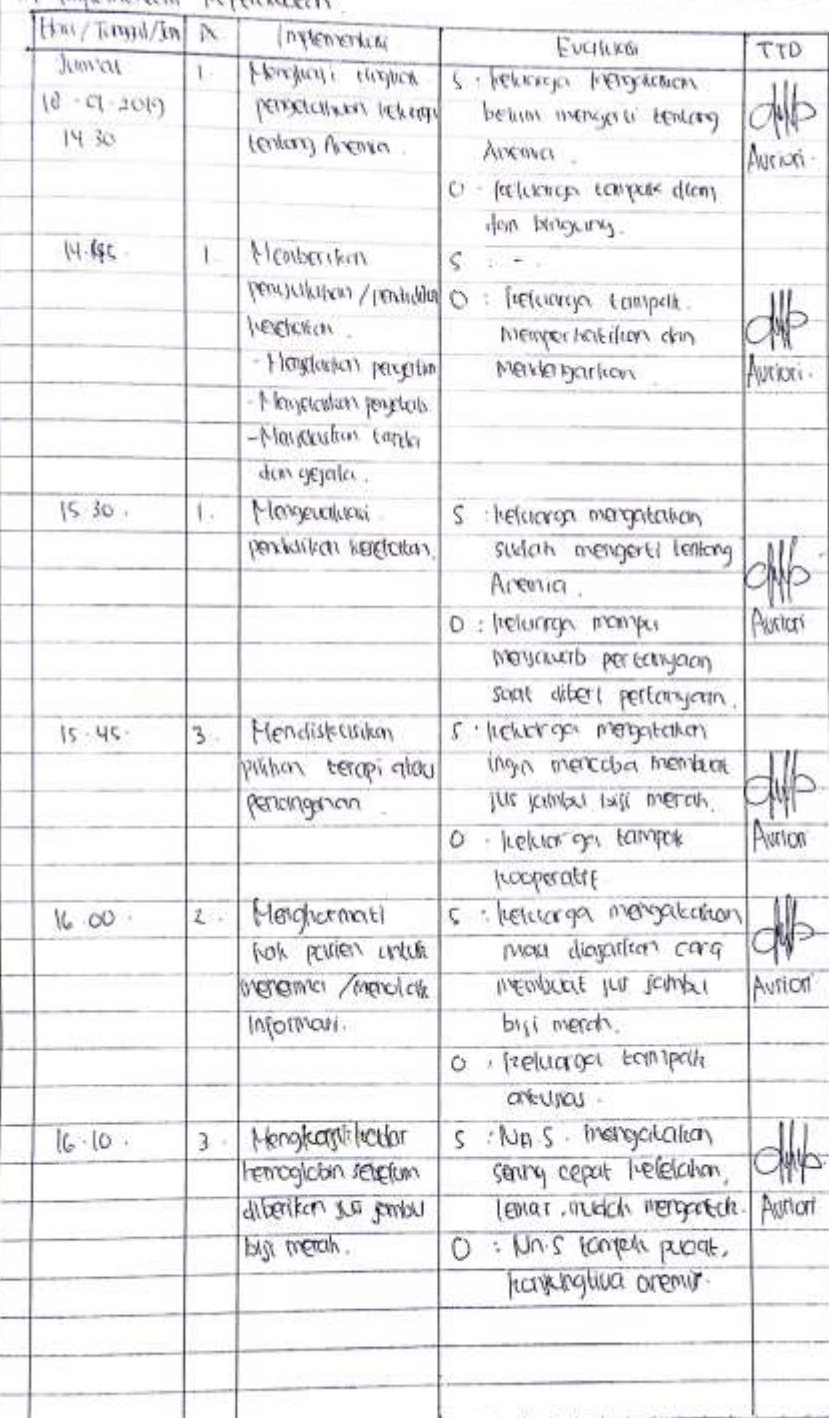 Implementasi Keperawatan
Hari / Tanggal / Jam
Implementasi
Evaluasi
TTD
Jumat
18 - 01 - 2019
14 30
1.
Mengkaji tingkat
pengetahuan keluarga
tentang Anemia.
S : keluarga mengatakan
belum mengerti tentang
Anemia.
O : keluarga tampak diam
dan bingung.
Auriori.
1
Memberikan
penyuluhan / pendidikan
kesehatan.
- Menjelaskan pengertian
- Menjelaskan penyebab
- Menjelaskan tanda
dan gejala.
S : -.
O : keluarga tampak
memperhatikan dan
mendengarkan
Auriori.
15 30.
1.
Mengevaluasi
pendidikan kesehatan.
S : keluarga mengatakan
sudah mengerti tentang
Anemia.
O : keluarga mampu
menjawab pertanyaan
saat diberi pertanyaan.
Auriori
15.45.
3.
Mendiskusikan
pilihan terapi atau
penanganan
S : keluarga mengatakan
ingin mencoba membuat
jus jambu biji merah.
O : keluarga tampak
kooperatif
Auriori
16 00.
2.
Menghormati
hak pasien untuk
menerima / menolak
Informasi.
S : keluarga mengatakan
mau diajarkan cara
membuat jus jambu
biji merah.
O : keluarga tampak
antusias.
Auriori
16.10.
3.
hemoglobin sebelum
diberikan jus jambu
biji merah.
S : Nn.S. mengatakan
sering cepat kelelahan,
lemas, mudah mengantuk.
O : Nn.S tampak pucat,
konjungtiva anemis.
Auriori